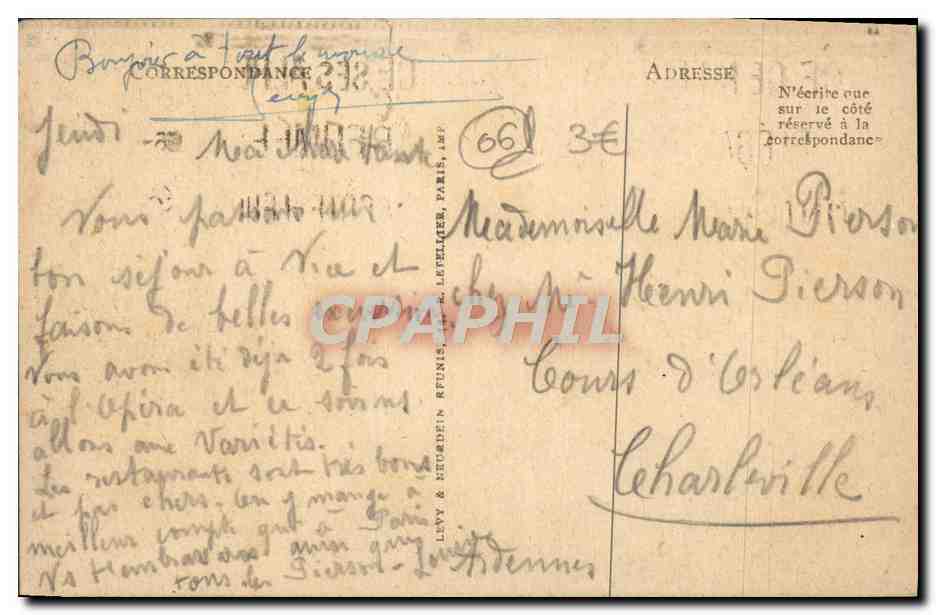 Bonjour à tout le monde
CORRESPONDANCE
Jeudi
Ma chère Tante
Nous passons
bon séjour à Nice et
faisons de belles
Nous avons été déjà 2 fois
à l'Opéra et ce soir ns
allons aux Variétés.
Les restaurants sont très bons
et pas chers. On y mange à
meilleur compte qu'à Paris
Ns t'embrassons ainsi que
tous les Pierson - Louise
LEVY & NEURDEIN RÉUNIS, 44, R. LETELLIER, PARIS, IMP
ADRESSE
N'écrire que
sur le côté
réservé à la
correspondance
06
3€
Mademoiselle Marie Pierson
chez Mr Henri Pierson
Cours d'Orléans
Charleville
Ardennes
CPAPHIL